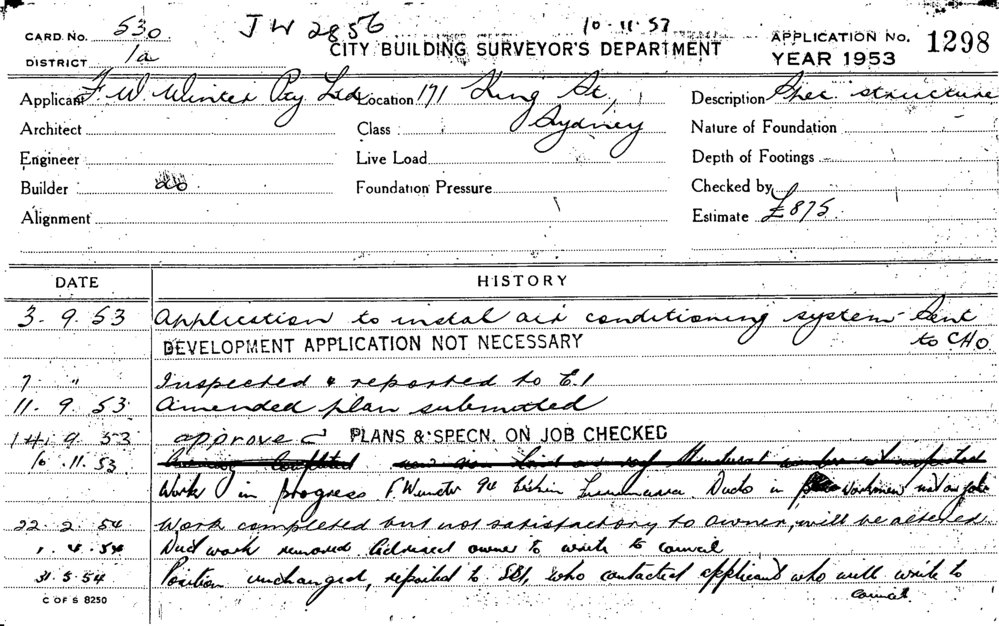 CARD No. 530
JW 2856
10.11.53
CITY BUILDING SURVEYOR'S DEPARTMENT
APPLICATION No. 1298
YEAR 1953
DISTRICT 1a
Applicant F. W. Winter Pty Ltd Location 171 King St, Sydney Description Spec. structure
Architect Class Nature of Foundation
Engineer Live Load Depth of Footings
Builder do Foundation Pressure Checked by
Alignment Estimate £875
DATE HISTORY
3. 9. 53 Application to instal air conditioning system - Sent to CHO.
DEVELOPMENT APPLICATION NOT NECESSARY
7 " Inspected & reported to E.1
11. 9. 53 Amended plan submitted
14. 9. 53 approved PLANS & SPECN. ON JOB CHECKED
10. 11. 53
Work in progress Ducts in workmen not on job
22. 2. 54 Work completed but not satisfactory to owner, will be altered
1. 4. 54 Duct work removed advised owner to write to council
31. 5. 54 Position unchanged, reported to SBI, who contacted applicant who will write to council
C OF S 8250